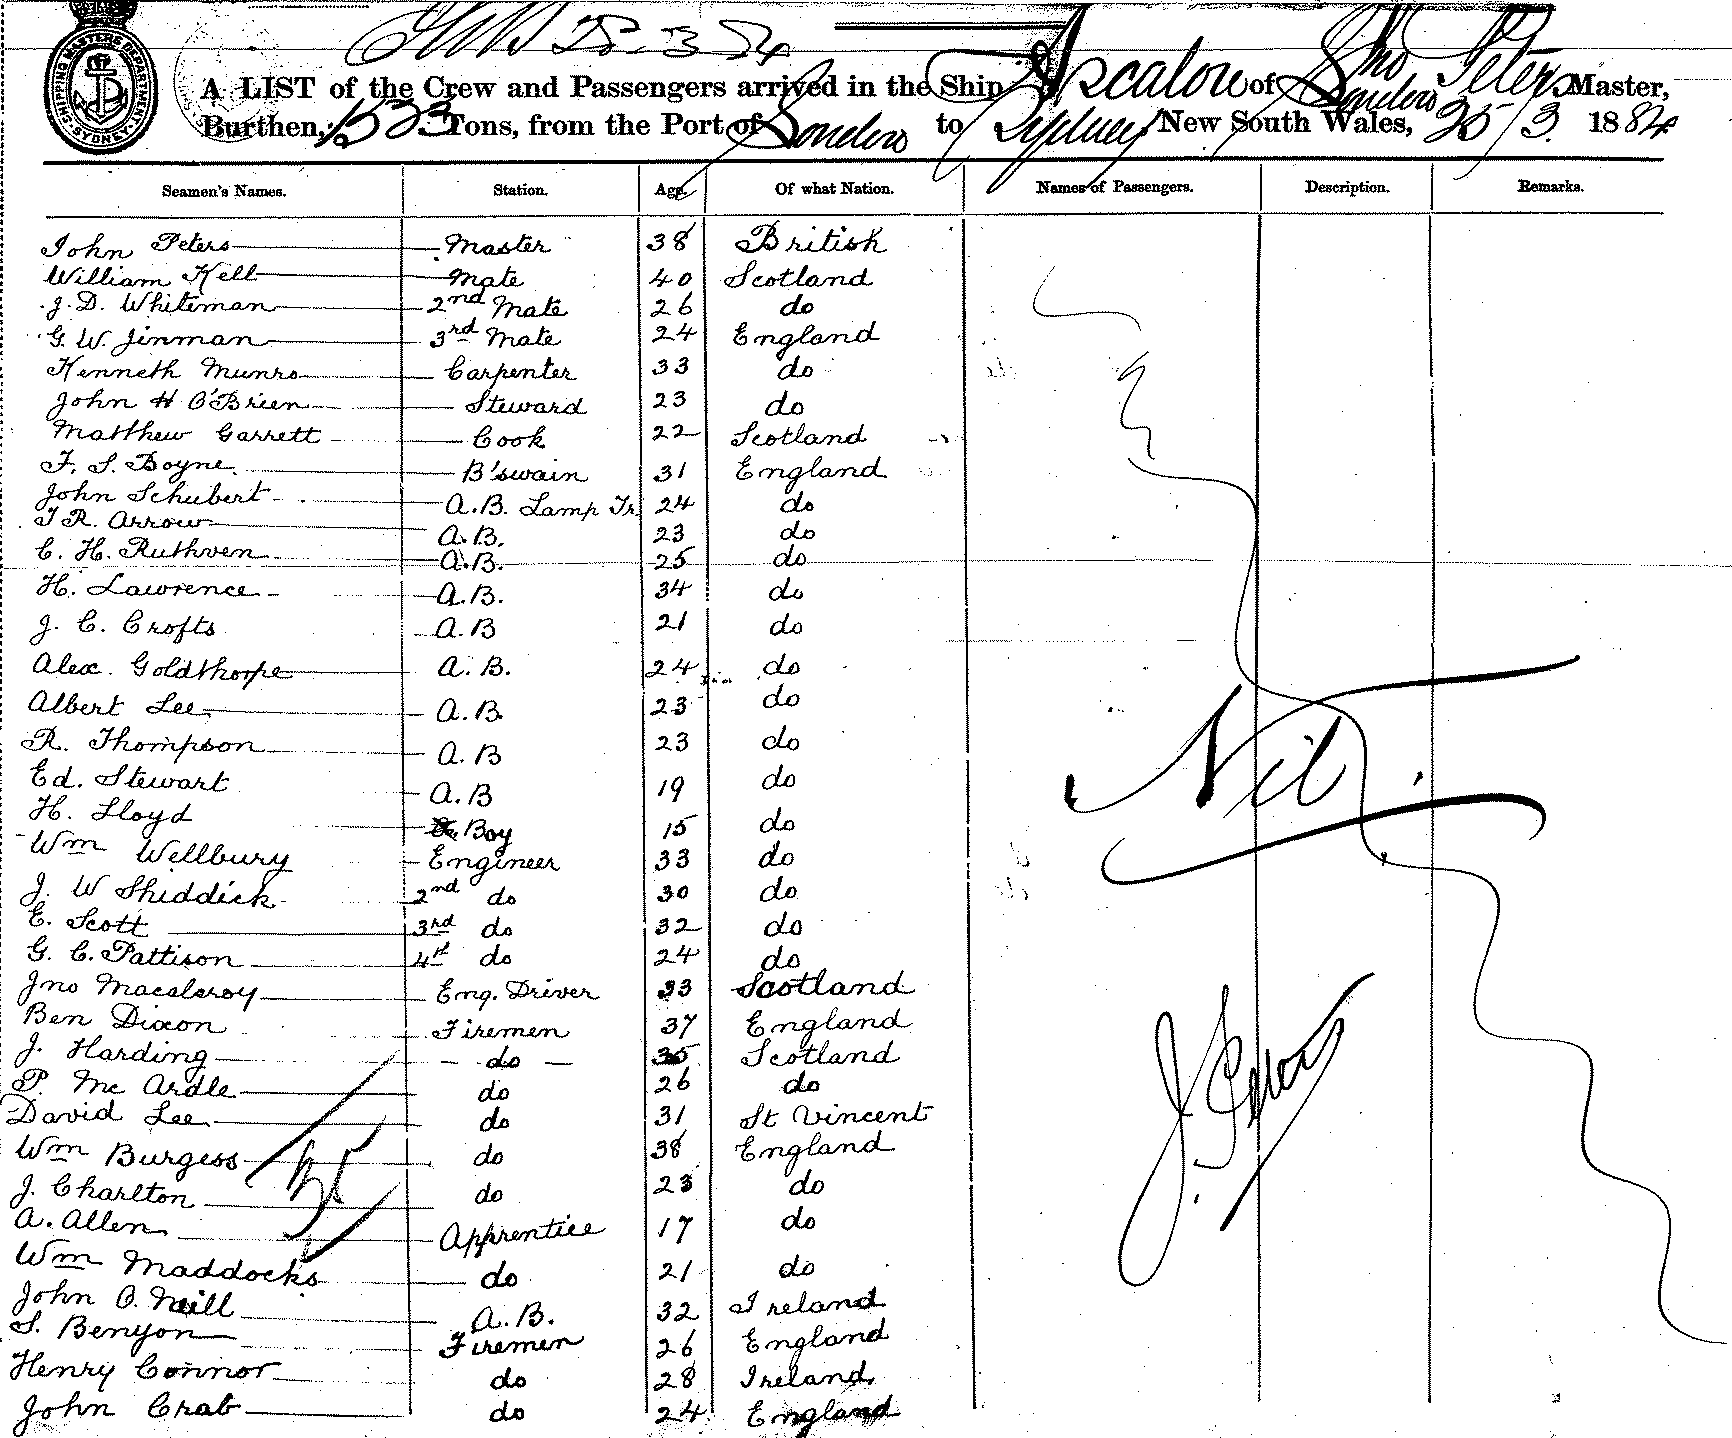 SHIPPING MASTERS DEPARTMENT SYDNEY
28-3-84
A LIST of the Crew and Passengers arrived in the Ship Ascalon of London Jno Peters Master,
Burthen, 1533 Tons, from the Port of London to Sydney New South Wales, 25/3 1884
Seamen's Names. Station. Age. Of what Nation. Names of Passengers. Description. Remarks.
John Peters Master 38 British
William Kell Mate 40 Scotland
J. D. Whiteman 2nd Mate 26 do
G. W. Jinman 3rd Mate 24 England
Kenneth Munro Carpenter 33 do
John H O'Brien Steward 23 do
Matthew Garrett Cook 22 Scotland
F. S. Boyne B'swain 31 England
John Schubert A.B. Lamp Tr 24 do
T R. Arrow A.B. 23 do
C. H. Ruthven A.B. 25 do
H. Lawrence A.B. 34 do
J. C. Crofts A.B 21 do
Alex. Goldthorpe A.B. 24 do
Albert Lee A.B. 23 do
R. Thompson A.B 23 do
Ed. Stewart A.B 19 do
H. Lloyd Boy 15 do
Wm Wellbury Engineer 33 do
J. W Shiddick 2nd do 30 do
E. Scott 3rd do 32 do
G. C. Pattison 4th do 24 do
Jno Macelroy Eng. Driver 33 Scotland
Ben Dixon Firemen 37 England
J. Harding do 35 Scotland
P. Mc Ardle do 26 do
David Lee do 31 St Vincent
Wm Burgess do 38 England
J. Charlton do 23 do
A. Allen Apprentice 17 do
Wm Maddocks do 21 do
John O. Neill A.B. 32 Ireland
S. Benyon Firemen 26 England
Henry Connor do 28 Ireland
John Crab do 24 England
Nil.
J. Peters